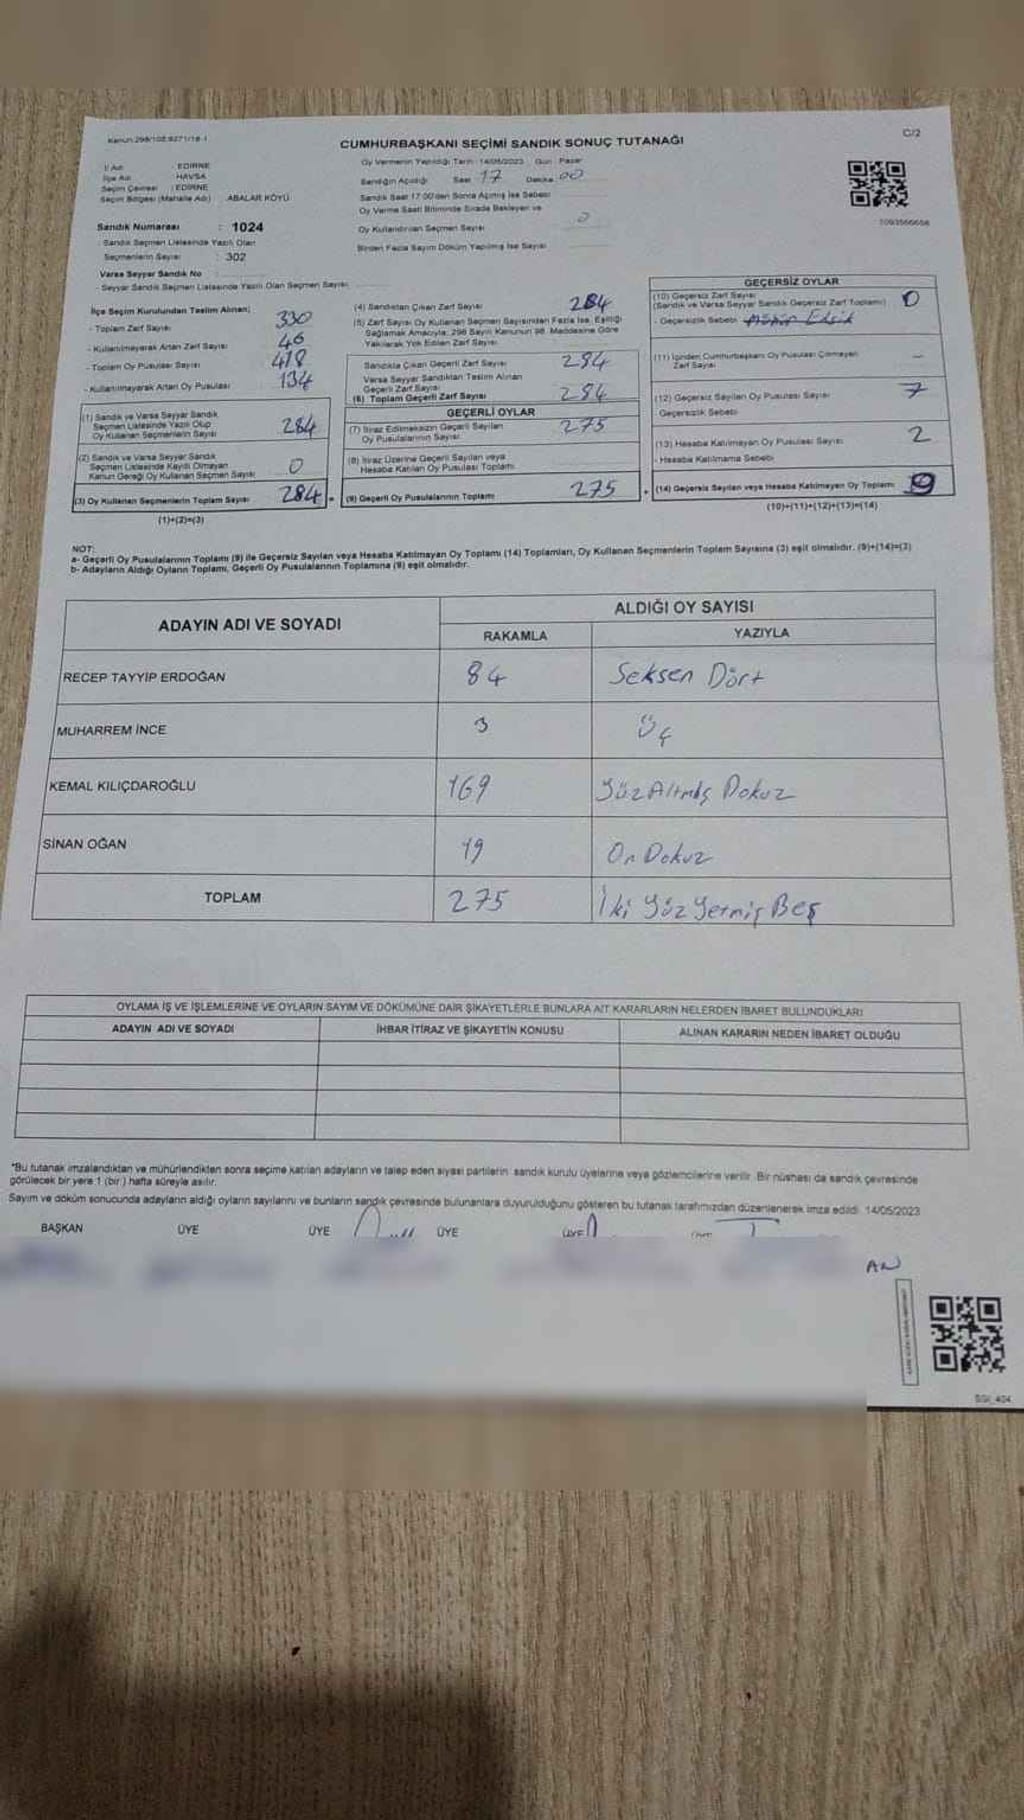 Kanun:298/105;6271/18-1
C/2
CUMHURBAŞKANI SEÇİMİ SANDIK SONUÇ TUTANAĞI
İl Adı : EDİRNE
İlçe Adı : HAVSA
Seçim Çevresi : EDİRNE
Seçim Bölgesi (Mahalle Adı) ABALAR KÖYÜ
Sandık Numarası : 1024
Sandık Seçmen Listesinde Yazılı Olan
Seçmenlerin Sayısı : 302
Varsa Seyyar Sandık No :
- Seyyar Sandık Seçmen Listesinde Yazılı Olan Seçmen Sayısı
Oy Vermenin Yapıldığı Tarih : 14/05/2023 Gün : Pazar
Sandığın Açıldığı Saat 17 Dakika 00
Sandık Saat 17:00'den Sonra Açılmış İse Sebebi
Oy Verme Saati Bitiminde Sırada Bekleyen ve
Oy Kullandırılan Seçmen Sayısı 0
Birden Fazla Sayım Döküm Yapılmış İse Sayısı
İlçe Seçim Kurulundan Teslim Alınan;
- Toplam Zarf Sayısı 330
- Kullanılmayarak Artan Zarf Sayısı 46
- Toplam Oy Pusulası Sayısı 418
- Kullanılmayarak Artan Oy Pusulası 134
(1) Sandık ve Varsa Seyyar Sandık
Seçmen Listesinde Yazılı Olup
Oy Kullanan Seçmenlerin Sayısı 284
(2) Sandık ve Varsa Seyyar Sandık
Seçmen Listesinde Kayıtlı Olmayan
Kanun Gereği Oy Kullanan Seçmen Sayısı 0
(3) Oy Kullanan Seçmenlerin Toplam Sayısı 284
(1)+(2)=(3)
(4) Sandıktan Çıkan Zarf Sayısı 284
(5) Zarf Sayısı Oy Kullanan Seçmen Sayısından Fazla İse, Eşitliği
Sağlamak Amacıyla, 298 Sayılı Kanunun 98. Maddesine Göre
Yakılarak Yok Edilen Zarf Sayısı
Sandıkta Çıkan Geçerli Zarf Sayısı 284
Varsa Seyyar Sandıktan Teslim Alınan
Geçerli Zarf Sayısı
(6) Toplam Geçerli Zarf Sayısı 284
GEÇERLİ OYLAR
(7) İtiraz Edilmeksizin Geçerli Sayılan
Oy Pusulalarının Sayısı 275
(8) İtiraz Üzerine Geçerli Sayılan veya
Hesaba Katılan Oy Pusulası Toplamı
(9) Geçerli Oy Pusulalarının Toplamı 275
GEÇERSİZ OYLAR
(10) Geçersiz Zarf Sayısı
(Sandık ve Varsa Seyyar Sandık Geçersiz Zarf Toplamı) 0
- Geçersizlik Sebebi Mühür Eksik
(11) İçinden Cumhurbaşkanı Oy Pusulası Çıkmayan
Zarf Sayısı -
(12) Geçersiz Sayılan Oy Pusulası Sayısı 7
Geçersizlik Sebebi
(13) Hesaba Katılmayan Oy Pusulası Sayısı 2
- Hesaba Katılmama Sebebi
(14) Geçersiz Sayılan veya Hesaba Katılmayan Oy Toplamı 9
(10)+(11)+(12)+(13)=(14)
NOT:
a- Geçerli Oy Pusulalarının Toplamı (9) ile Geçersiz Sayılan veya Hesaba Katılmayan Oy Toplamı (14) Toplamları, Oy Kullanan Seçmenlerin Toplam Sayısına (3) eşit olmalıdır. (9)+(14)=(3)
b- Adayların Aldığı Oyların Toplamı, Geçerli Oy Pusulalarının Toplamına (9) eşit olmalıdır.
ADAYIN ADI VE SOYADI
ALDIĞI OY SAYISI
RAKAMLA YAZIYLA
RECEP TAYYİP ERDOĞAN 84 Seksen Dört
MUHARREM İNCE 3 Üç
KEMAL KILIÇDAROĞLU 169 Yüz Altmış Dokuz
SİNAN OĞAN 19 On Dokuz
TOPLAM 275 İki Yüz Yetmiş Beş
OYLAMA İŞ VE İŞLEMLERİNE VE OYLARIN SAYIM VE DÖKÜMÜNE DAİR ŞİKAYETLERLE BUNLARA AİT KARARLARIN NELERDEN İBARET BULUNDUKLARI
ADAYIN ADI VE SOYADI İHBAR İTİRAZ VE ŞİKAYETİN KONUSU ALINAN KARARIN NEDEN İBARET OLDUĞU
*Bu tutanak imzalandıktan ve mühürlendikten sonra seçime katılan adayların ve talep eden siyasi partilerin sandık kurulu üyelerine veya gözlemcilerine verilir. Bir nüshası da sandık çevresinde
görülecek bir yere 1 (bir) hafta süreyle asılır.
Sayım ve döküm sonucunda adayların aldığı oyların sayılarını ve bunların sandık çevresinde bulunanlara duyurulduğunu gösteren bu tutanak tarafımızdan düzenlenerek imza edildi. 14/05/2023
BAŞKAN ÜYE ÜYE ÜYE ÜYE
AN